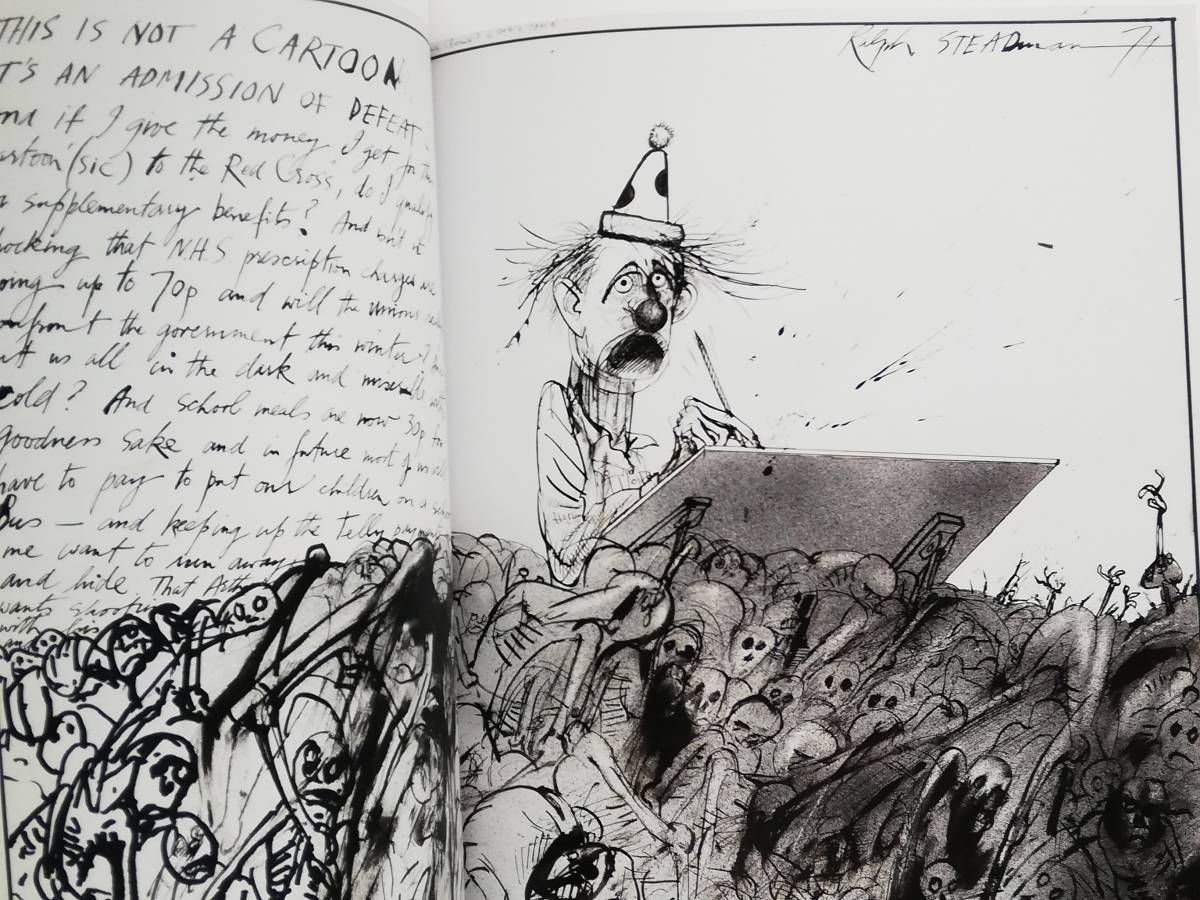 THIS IS NOT A CARTOON
T'S AN ADMISSION OF DEFEAT
nd if I give the money I get for th
artoon' (sic) to the Red Cross, do I
supplementary benefits? And isn't it
hocking that N.H.S prescription charges are
oing up to 70p and will the unions
onfront the government this winter?
us all in the dark and miserable
cold? And school meals are now 30p for
goodness sake and in future most of us
have to pay to put our children on a
Bus — and keeping up the telly
me want to run away
and hide That
wants
with his
Ralph STEADman